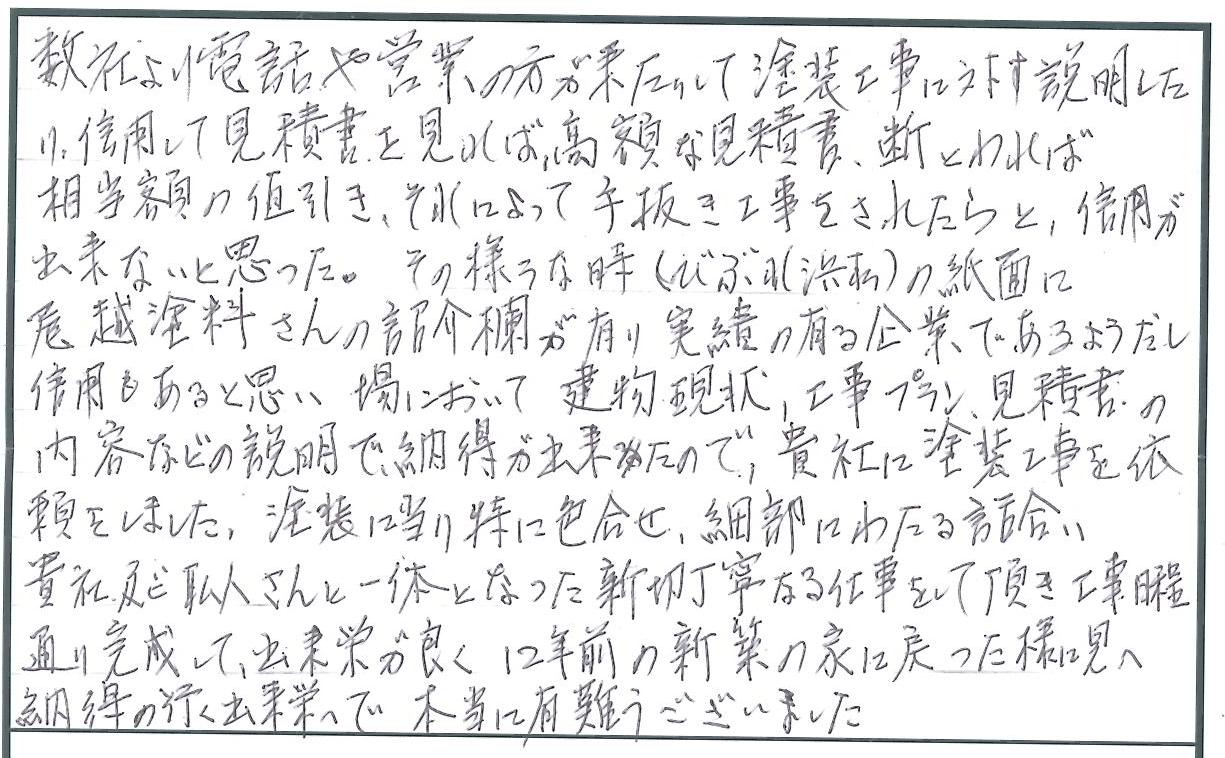 数社より電話や営業の方が来たりして塗装工事に対す説明した
り、信用して見積書を見れば、高額な見積書、断とわれば
相当額の値引き、それによって手抜き工事をされたらと、信用が
出来ないと思った。 その様うな時(びぶれ浜松)の紙面に
尾越塗料さんの紹介欄が有り 実績の有る企業であるようだし
信用もあると思い 場において 建物現状、工事プラン、見積書の
内容などの説明で、納得が出来たので、貴社に塗装工事を依
頼をしました、塗装に当り特に色合せ、細部にわたる話合い
貴社及び職人さんと一体となった新切丁寧なる仕事をして頂き工事日程
通り完成して、出来栄が良く 12年前の新築の家に戻った様に見へ
納得の行く出来栄へで 本当に有難うございました